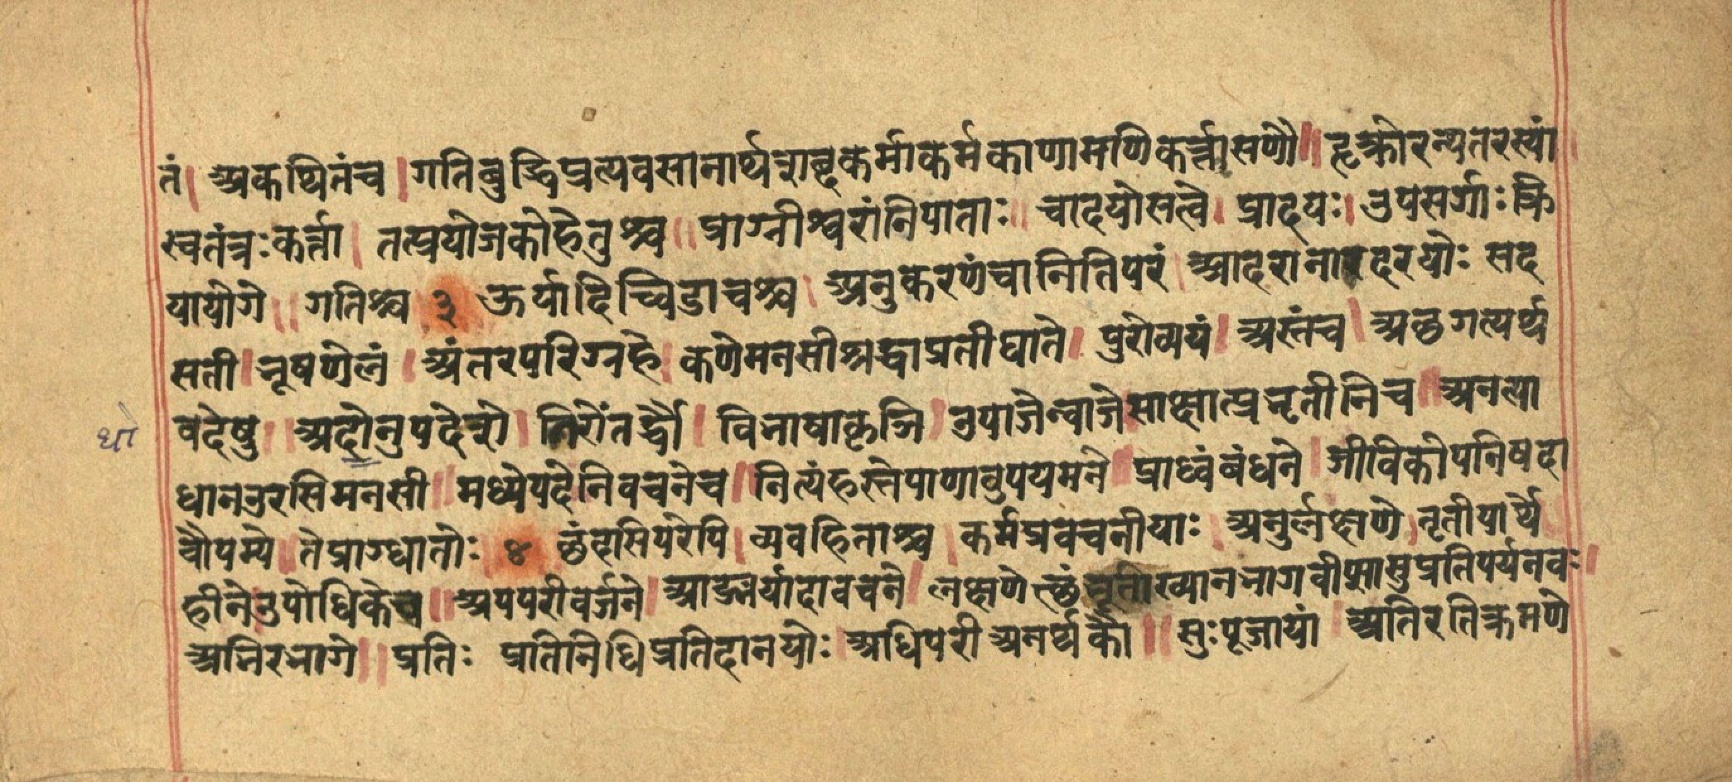 तं। अकथितंच। गतिबुद्धिप्रत्यवसानार्थशब्दकर्माकर्मकाणामणिकर्त्तासणौ॥ हृक्रोरन्यतरस्यां
स्वतंत्रःकर्त्ता। तत्प्रयोजकोहेतुश्च॥ प्राग्नीश्वरांनिपाताः॥ चादयोसत्वे। प्रादयः। उपसर्गाःक्रि
यायोगे॥ गतिश्च ३ ऊर्यादिच्विडाचश्च। अनुकरणंचानितिपरं। आदरानारदरयोः सद
सती। भूषणेलं। अंतरपरिग्रहे। कणेमनसीश्रद्धाप्रतीघाते। पुरोव्ययं। अस्तंच। अछगत्यर्थ
वदेषु॥ अदोनुपदेशे। तिरोंतर्द्धौ। विभाषाकृञि। उपाजेन्वाजे साक्षात्प्रभृतीनिच॥ अनत्या
धो
धानउरसिमनसी॥ मध्येपदेनिवचनेच। नित्यंहस्तेपाणावुपयमने॥ प्राध्वंबंधने। जीविकोपनिषदा
वौपम्ये। तेप्राग्धातोः ४ छंदसिपरेपि। व्यवहिताश्च। कर्मप्रवचनीयाः। अनुर्लक्षणे। तृतीयार्थे
हीनेउपोधिकेच॥ अपपरीवर्जने। आङ्मर्यादावचने। लक्षणेत्छंभूताख्यानभागवीप्सासुप्रतिपर्यनवः॥
अभिरभागे॥ प्रतिः प्रतिनिधिप्रतिदानयोः। अधिपरीअनर्थकौ॥ सुःपूजायां। अतिरतिक्रमणे